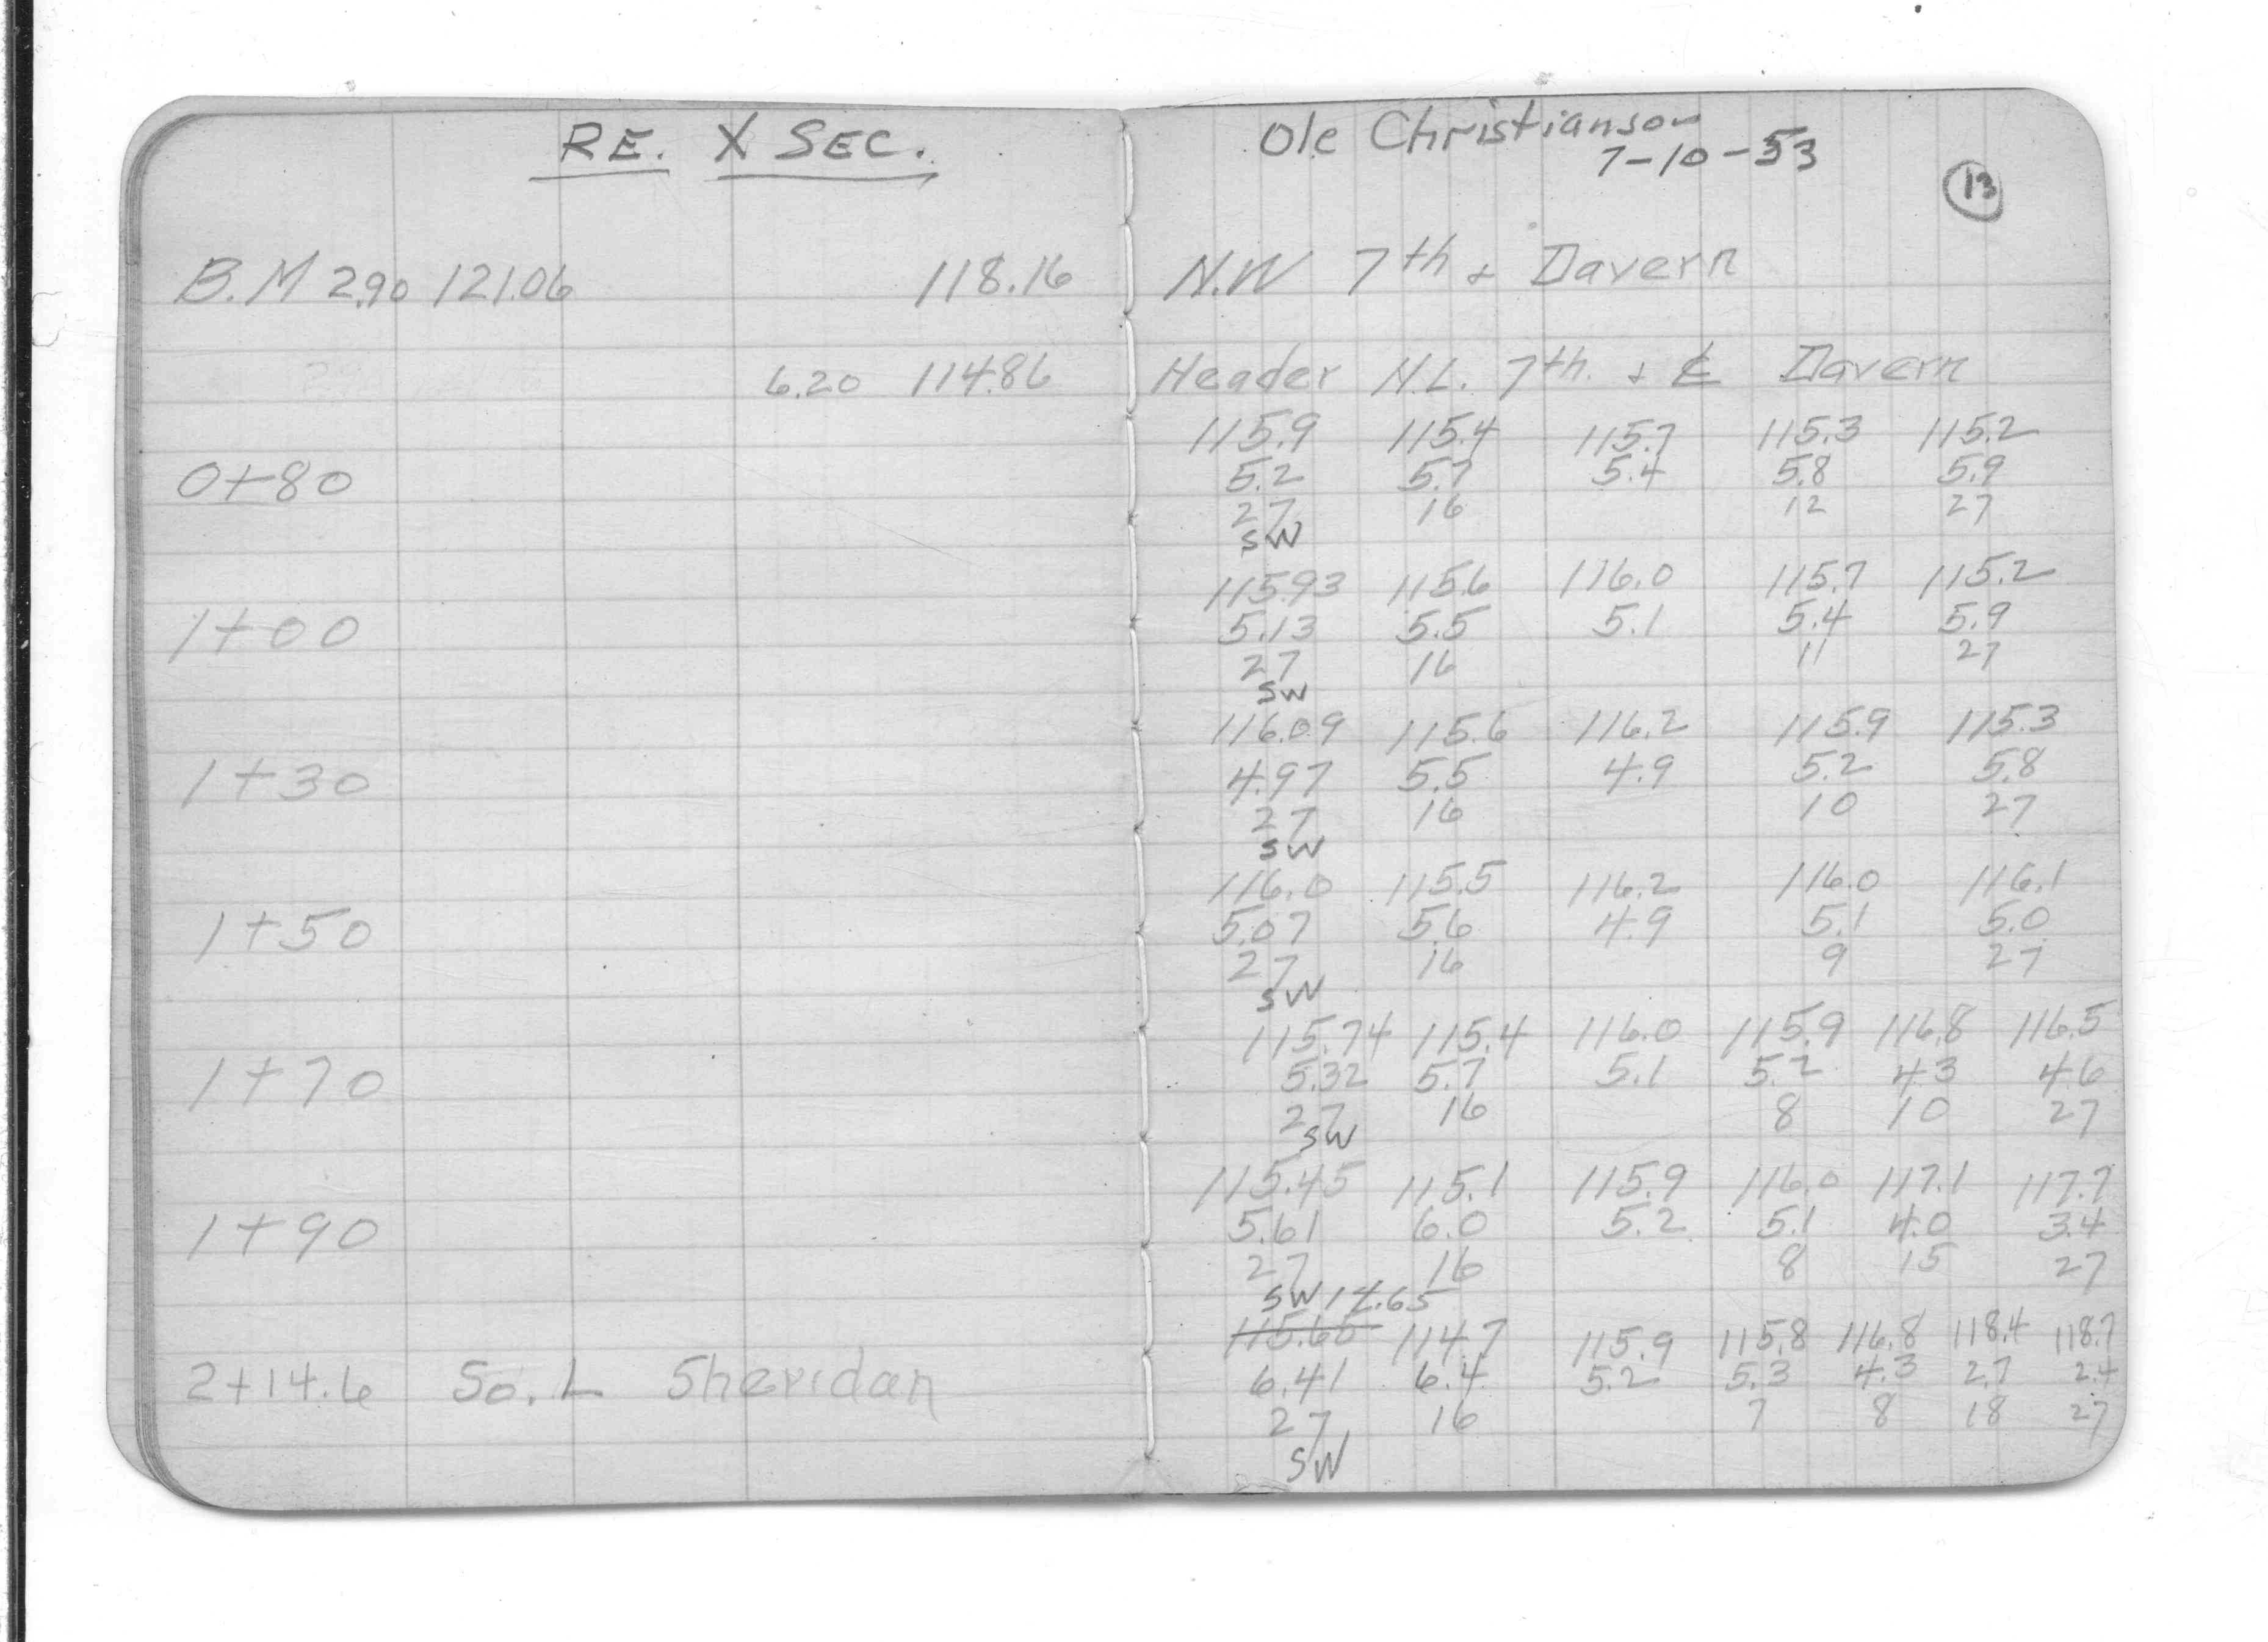 RE. X SEC.
Ole Christianson
7-10-53
13
B.M 2.90 121.06 118.16 N.W 7th + Davern
6.20 114.86 Header N.L. 7th. + ℄ Davern
115.9 115.4 115.7 115.3 115.2
0+80 5.2 5.7 5.4 5.8 5.9
27 16 12 27
SW
115.93 115.6 116.0 115.7 115.2
1+00 5.13 5.5 5.1 5.4 5.9
27 16 11 27
SW
116.09 115.6 116.2 115.9 115.3
1+30 4.97 5.5 4.9 5.2 5.8
27 16 10 27
SW
116.0 115.5 116.2 116.0 116.1
1+50 5.07 5.6 4.9 5.1 5.0
27 16 9 27
SW
115.74 115.4 116.0 115.9 116.8 116.5
1+70 5.32 5.7 5.1 5.2 4.3 4.6
27 16 8 10 27
SW
115.45 115.1 115.9 116.0 117.1 117.7
1+90 5.61 6.0 5.2 5.1 4.0 3.4
27 16 8 15 27
SW 14.65
115.65 114.7 115.9 115.8 116.8 118.4 118.7
2+14.6 So. L Sheridan 6.41 6.4 5.2 5.3 4.3 2.7 2.4
27 16 7 8 18 27
SW